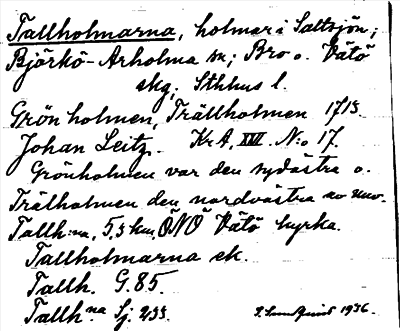 Tallholmarna, holmar i Saltsjön;
Björkö-Arholma sn; Bro o. Vätö
skg; Sthlms l.
Grönholmen, Trällholmen 1713.
Johan Leitz. KrA, XVI. N:o 17.
Grönholmen var den sydöstra o.
Trälholmen den nordvästra av nuv.
Tallh:na, 5,3 km, ÖNÖ Vätö kyrka.
Tallholmarna ek.
Tallh. G. 85.
Tallh.na Sj. 233.
1936.